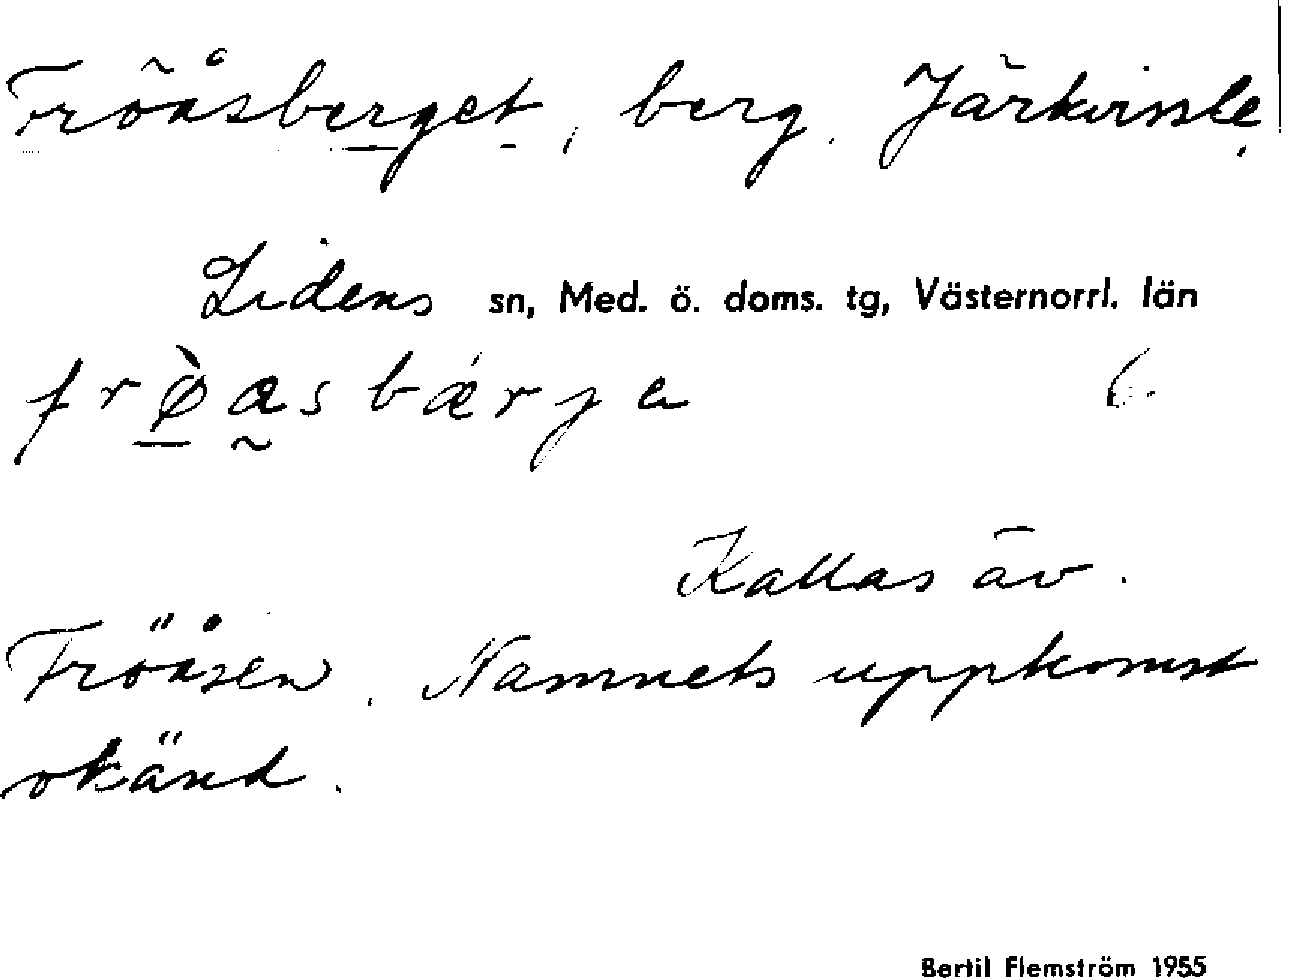 Fröåsberget, berg. Järkvissle,
Lidens sn, Med. ö. doms. tg, Västernorrl. län
Kallas äv.
Fröåsen. Namnets uppkomst
okänd.
Bertil Flemström 1955